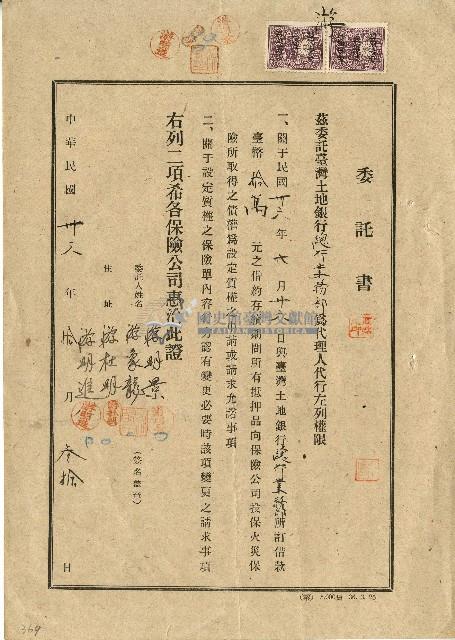 游
委託書
茲委託臺灣土地銀行總行業務部為代理人代行左列權限
一、關于民國卅六年七月十八日與臺灣土地銀行總行業務部所訂借款
臺幣拾萬元之借約存續期間所有抵押品向保險公司投保火災保
險所取得之債權為設定質權之申請或請求允諾事項
二、關于設定質權之保險單內容如認有變更必要時該項變更之請求事項
右列二項希各保險公司惠洽此證
委託人姓名
游明景
游象龍
住址
游杜明
游明進
(簽名蓋章)
中華民國卅六年 月叁拾日
國史館臺灣文獻館
TAIWAN HISTORICA
369